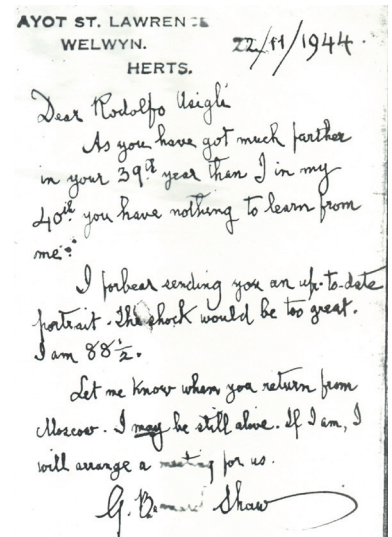 AYOT ST. LAWRENCE
WELWYN.
HERTS.
22/11/1944.
Dear Rodolfo Usigli
As you have got much farther
in your 39th year than I in my
40th you have nothing to learn from
me.
I forbear sending you an up-to-date
portrait. The shock would be too great.
I am 88 ½.
Let me know when you return from
Moscow. I may be still alive. If I am, I
will arrange a meeting for us.
G. Bernard Shaw